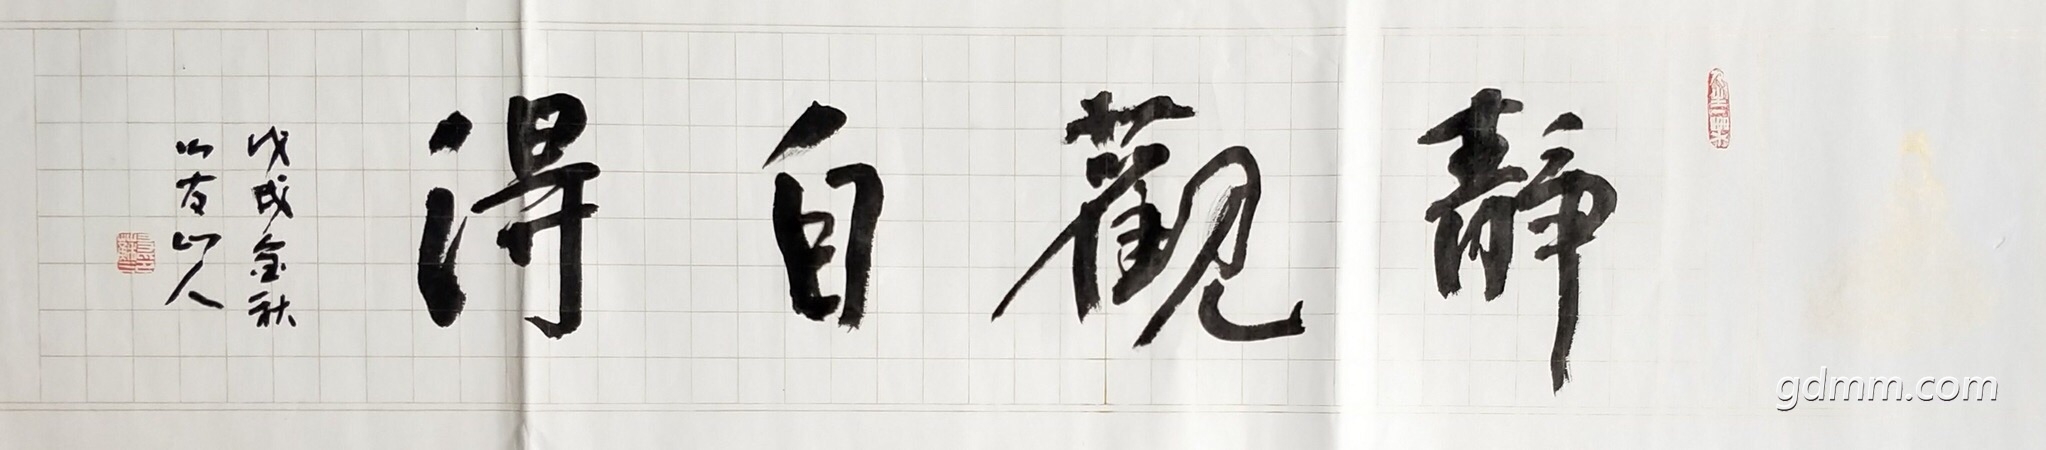 靜觀自得
戊戌金秋
山人
gdmm.com